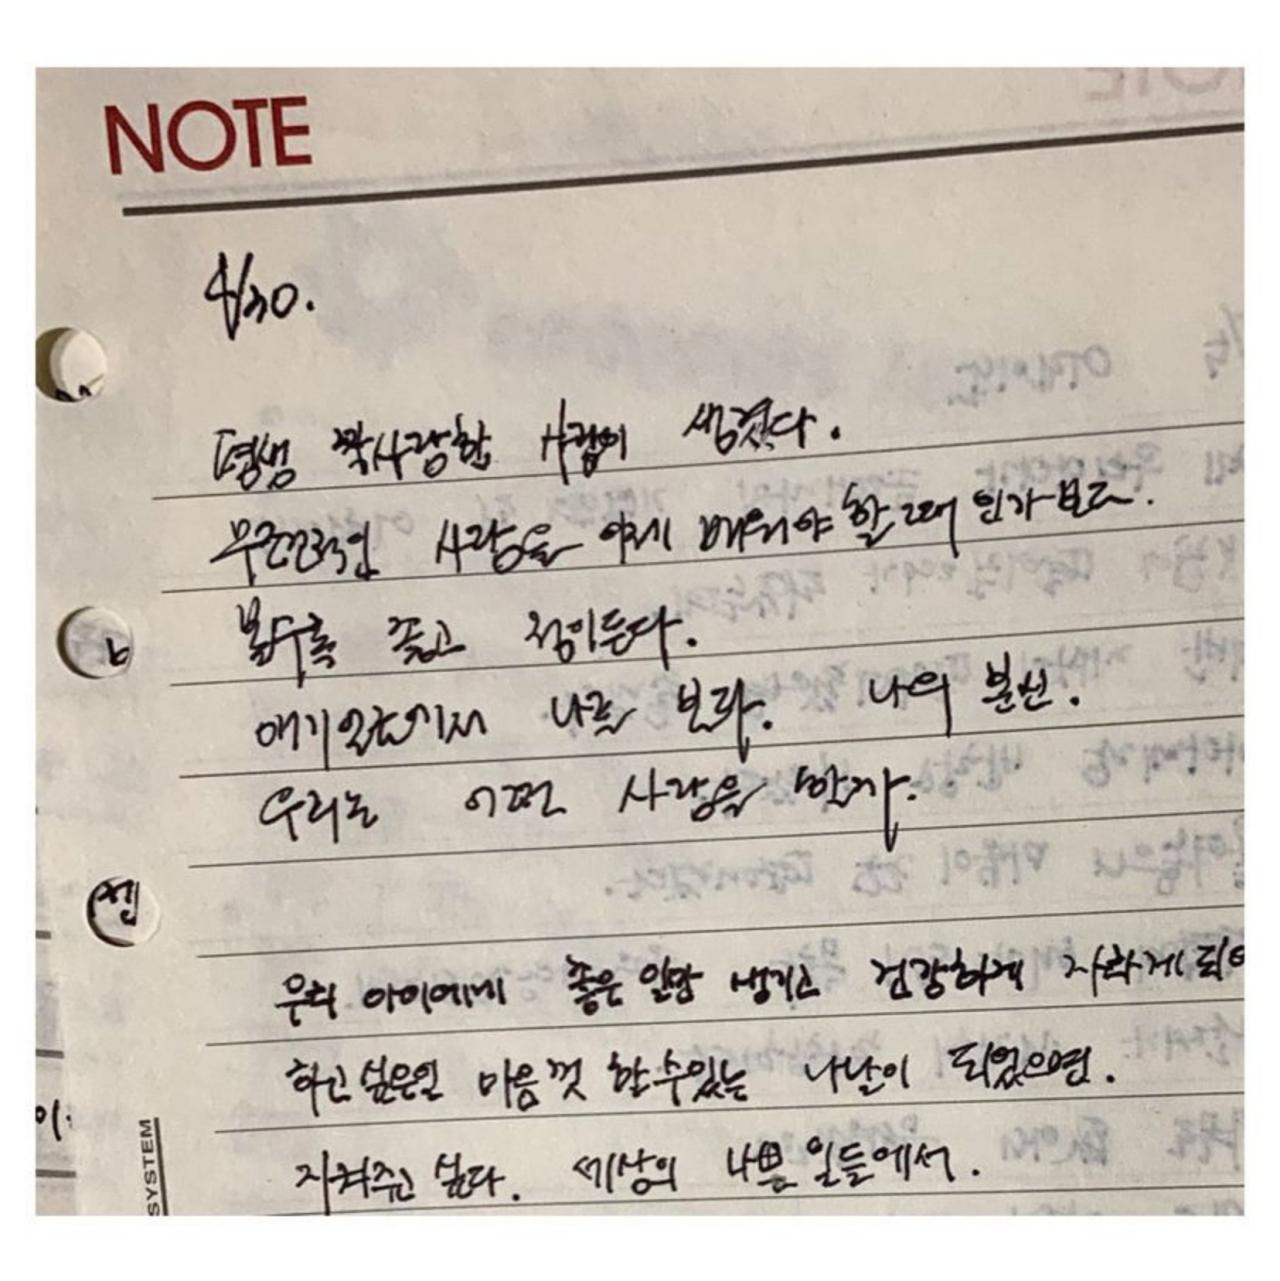 NOTE
4/30.
평생 짝사랑할 사람이 생겼다.
무조건적인 사랑을 이제 배워야 할 때 인가보다.
볼수록 좋고 정이든다.
애기안에서 나를 보다. 나의 분신.
우리는 어떤 사랑을 할까.
우리 아이에게 좋은 일만 생기고 건강하게 자라게 되어
하고 싶은일 마음껏 할 수 있는 나날이 되었으면.
지켜주고 싶다. 세상의 나쁜 일들에서.
SYSTEM